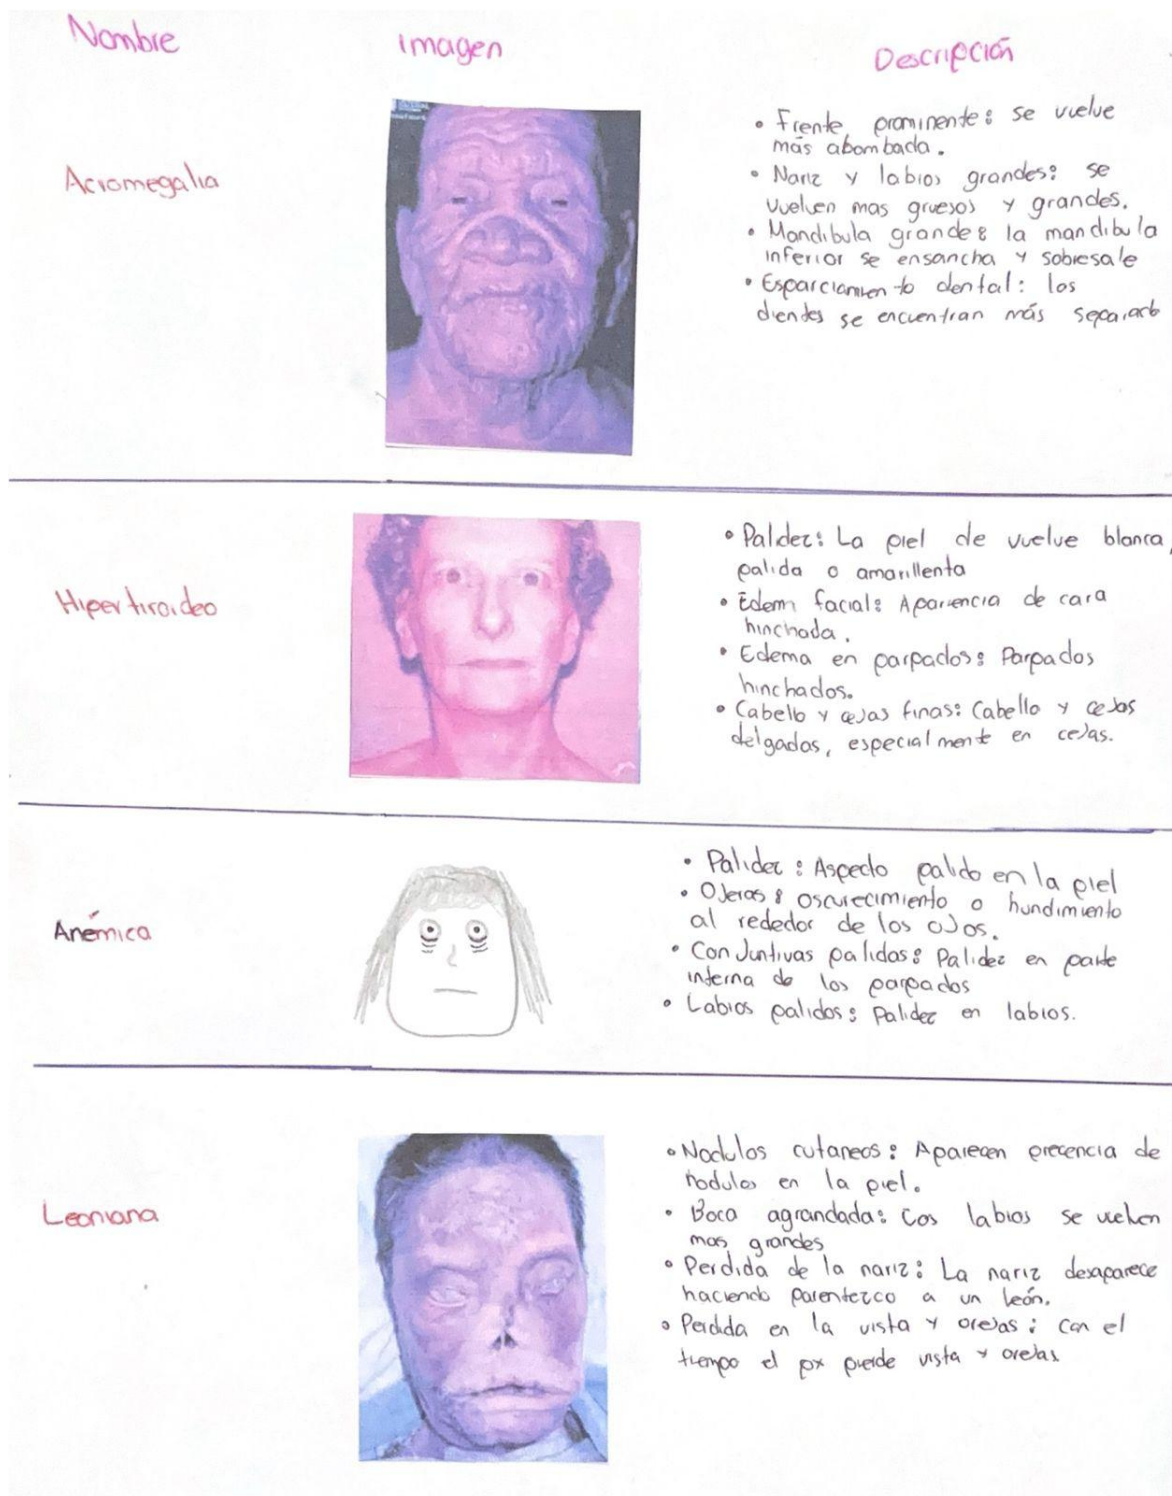 Nombre
Imagen
Descripción
Acromegalia
• Frente prominente: se vuelve
más abombada.
• Nariz y labios grandes: se
vuelven mas gruesos y grandes.
• Mandibula grande: la mandibula
inferior se ensancha y sobresale
• Esparciamiento dental: los
dientes se encuentran más separado
Hipertiroideo
• Paldez: La piel de vuelve blanca,
palida o amarillenta
• Edem facial: Apariencia de cara
hinchada.
• Edema en parpados: Parpados
hinchados.
• Cabello y cejas finas: Cabello y cejas
delgados, especialmente en cejas.
Anémica
• Palidez: Aspecto palido en la piel
• Ojeras: oscurecimiento o hundimiento
al rededor de los ojos.
• Conjuntivas palidas: Palidez en parte
interna de los parpados
• Labios palidos: Palidez en labios.
Leoniana
• Nodulos cutaneos: Aparecen precencia de
nodulos en la piel.
• Boca agrandada: Los labios se vuelven
mas grandes
• Perdida de la nariz: La nariz desaparece
haciendo parentezco a un león.
• Perdida en la vista y orejas: con el
tiempo el px pierde vista y orejas